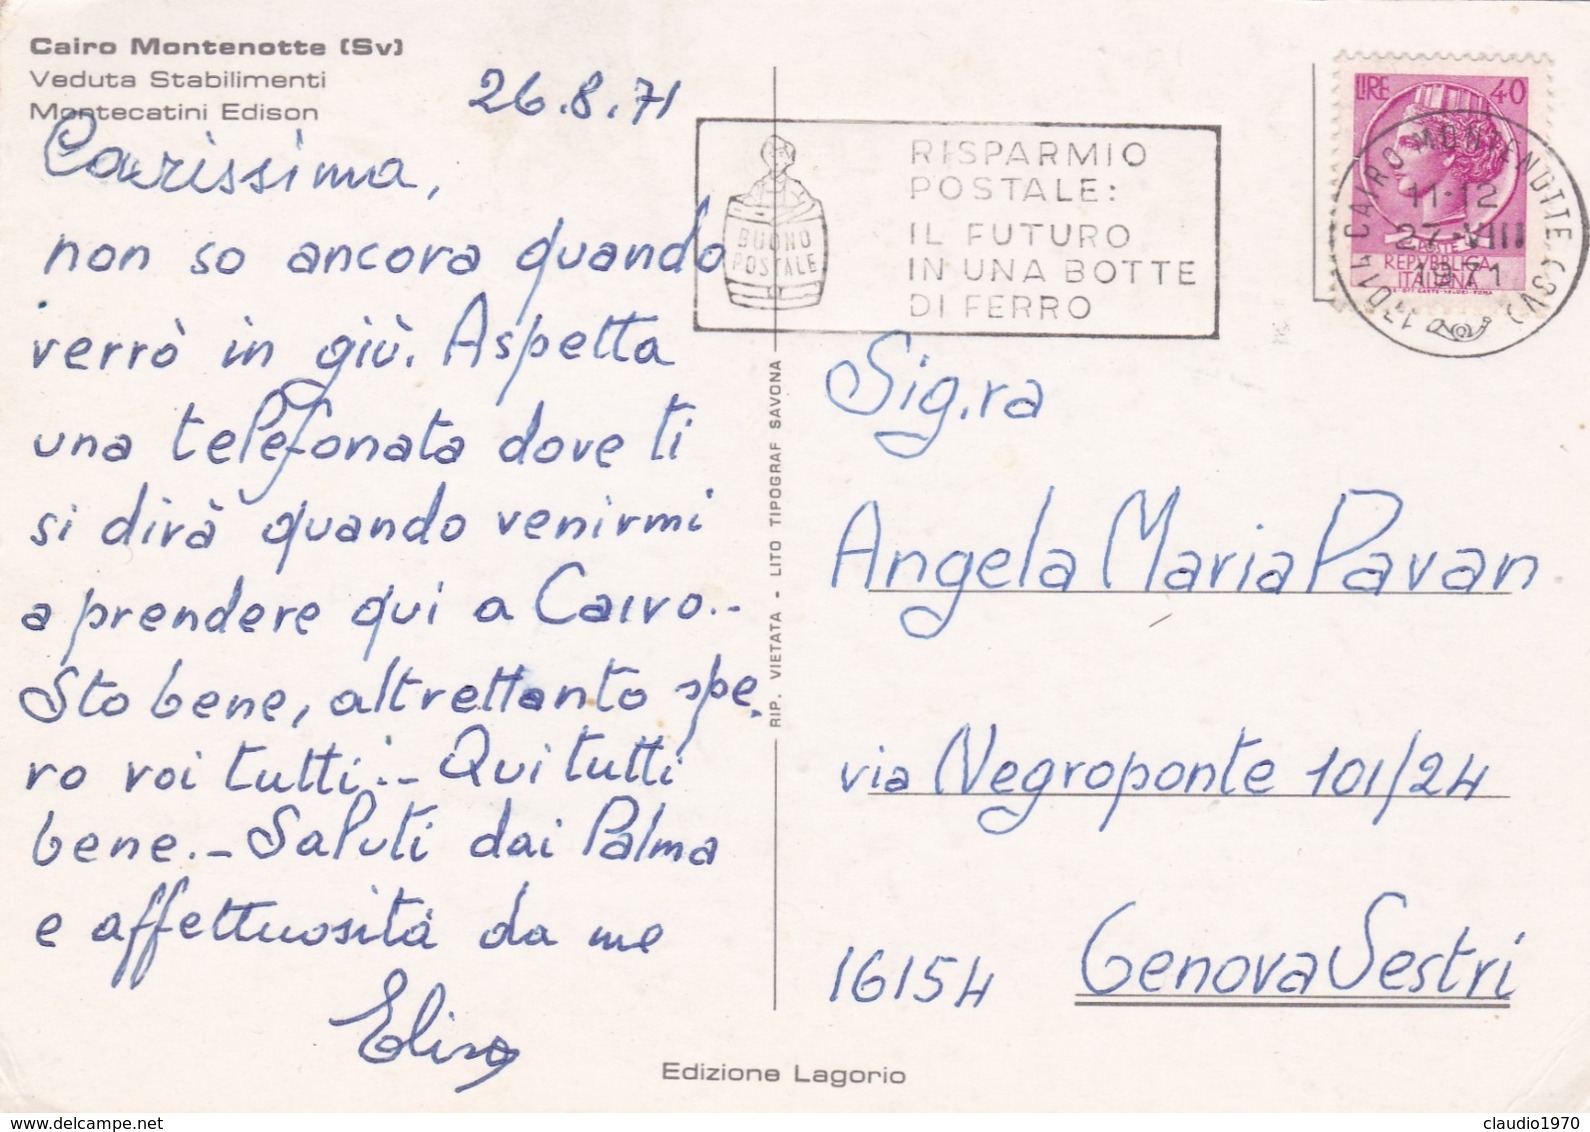 Cairo Montenotte (Sv)
Veduta Stabilimenti
Montecatini Edison
26.8.71
Carissima,
non so ancora quando
verrò in giù. Aspetta
una telefonata dove ti
si dirà quando venirmi
a prendere qui a Cairo..
Sto bene, altrettanto spe.
ro voi tutti.- Qui tutti
bene.- Saluti dai Palma
e affettuosità da me
Elisa
RIP. VIETATA - LITO TIPOGRAF SAVONA
BUONO
POSTALE
RISPARMIO
POSTALE:
IL FUTURO
IN UNA BOTTE
DI FERRO
LIRE 40
REPUBBLICA
ITALIANA
17014 CAIRO MONTENOTTE (SV)
11-12
27 VIII
1971
Sig.ra
Angela Maria Pavan
via Negroponte 101/24
16154 Genova Sestri
Edizione Lagorio
claudio1970